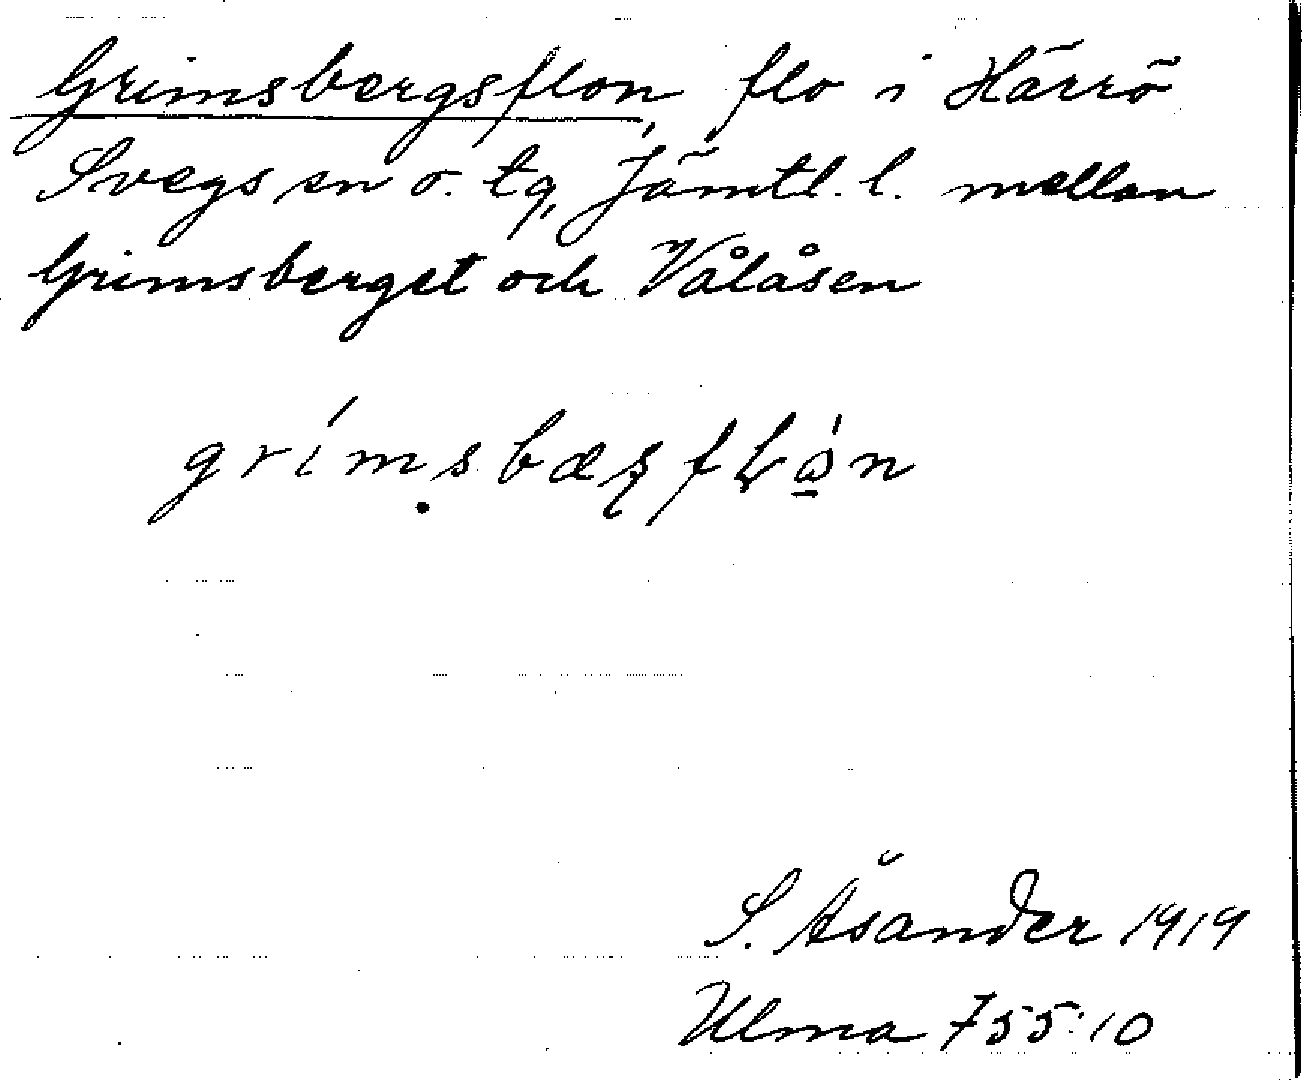 Grimsbergsflon, flo i Härrö,
Svegs sn o. tg, Jämtl. l. mellan
Grimsberget och Vålåsen
S. Åsander 1919
Ulma 755:10